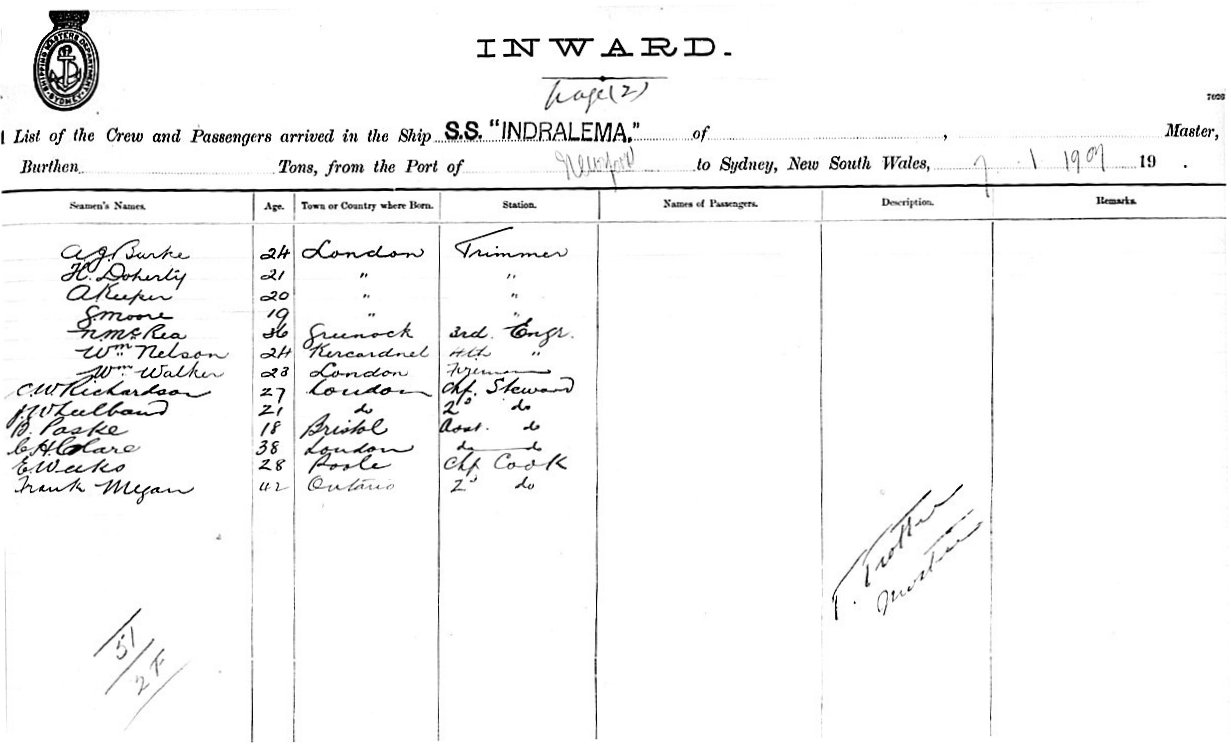 SHIPPING MASTERS DEPARTMENT SYDNEY
INWARD.
Page (2)
7026
List of the Crew and Passengers arrived in the Ship S.S. "INDRALEMA." of , Master,
Burthen Tons, from the Port of to Sydney, New South Wales, 7 1 1909 19 .
Seamen's Names. Age. Town or Country where Born. Station. Names of Passengers. Description. Remarks.
A J Burke 24 London Trimmer
H. Doherty 21 " "
A Keeper 20 " "
G. Moore 19 " "
N. McRea 36 Greenock 3rd. Engr.
Wm. Nelson 24 Kercardnel 4th "
Wm Walker 23 London Fireman
C. W. Richardson 27 London Chf. Steward
J. Wheelband 21 do 2d do
B. Paske 18 Bristol Asst. do
C. H. Clare 38 London do do
E. Weeks 28 Poole Chf Cook
Frank Megan 42 Ontario 2d do
T. Trotter
Master
51
2 F